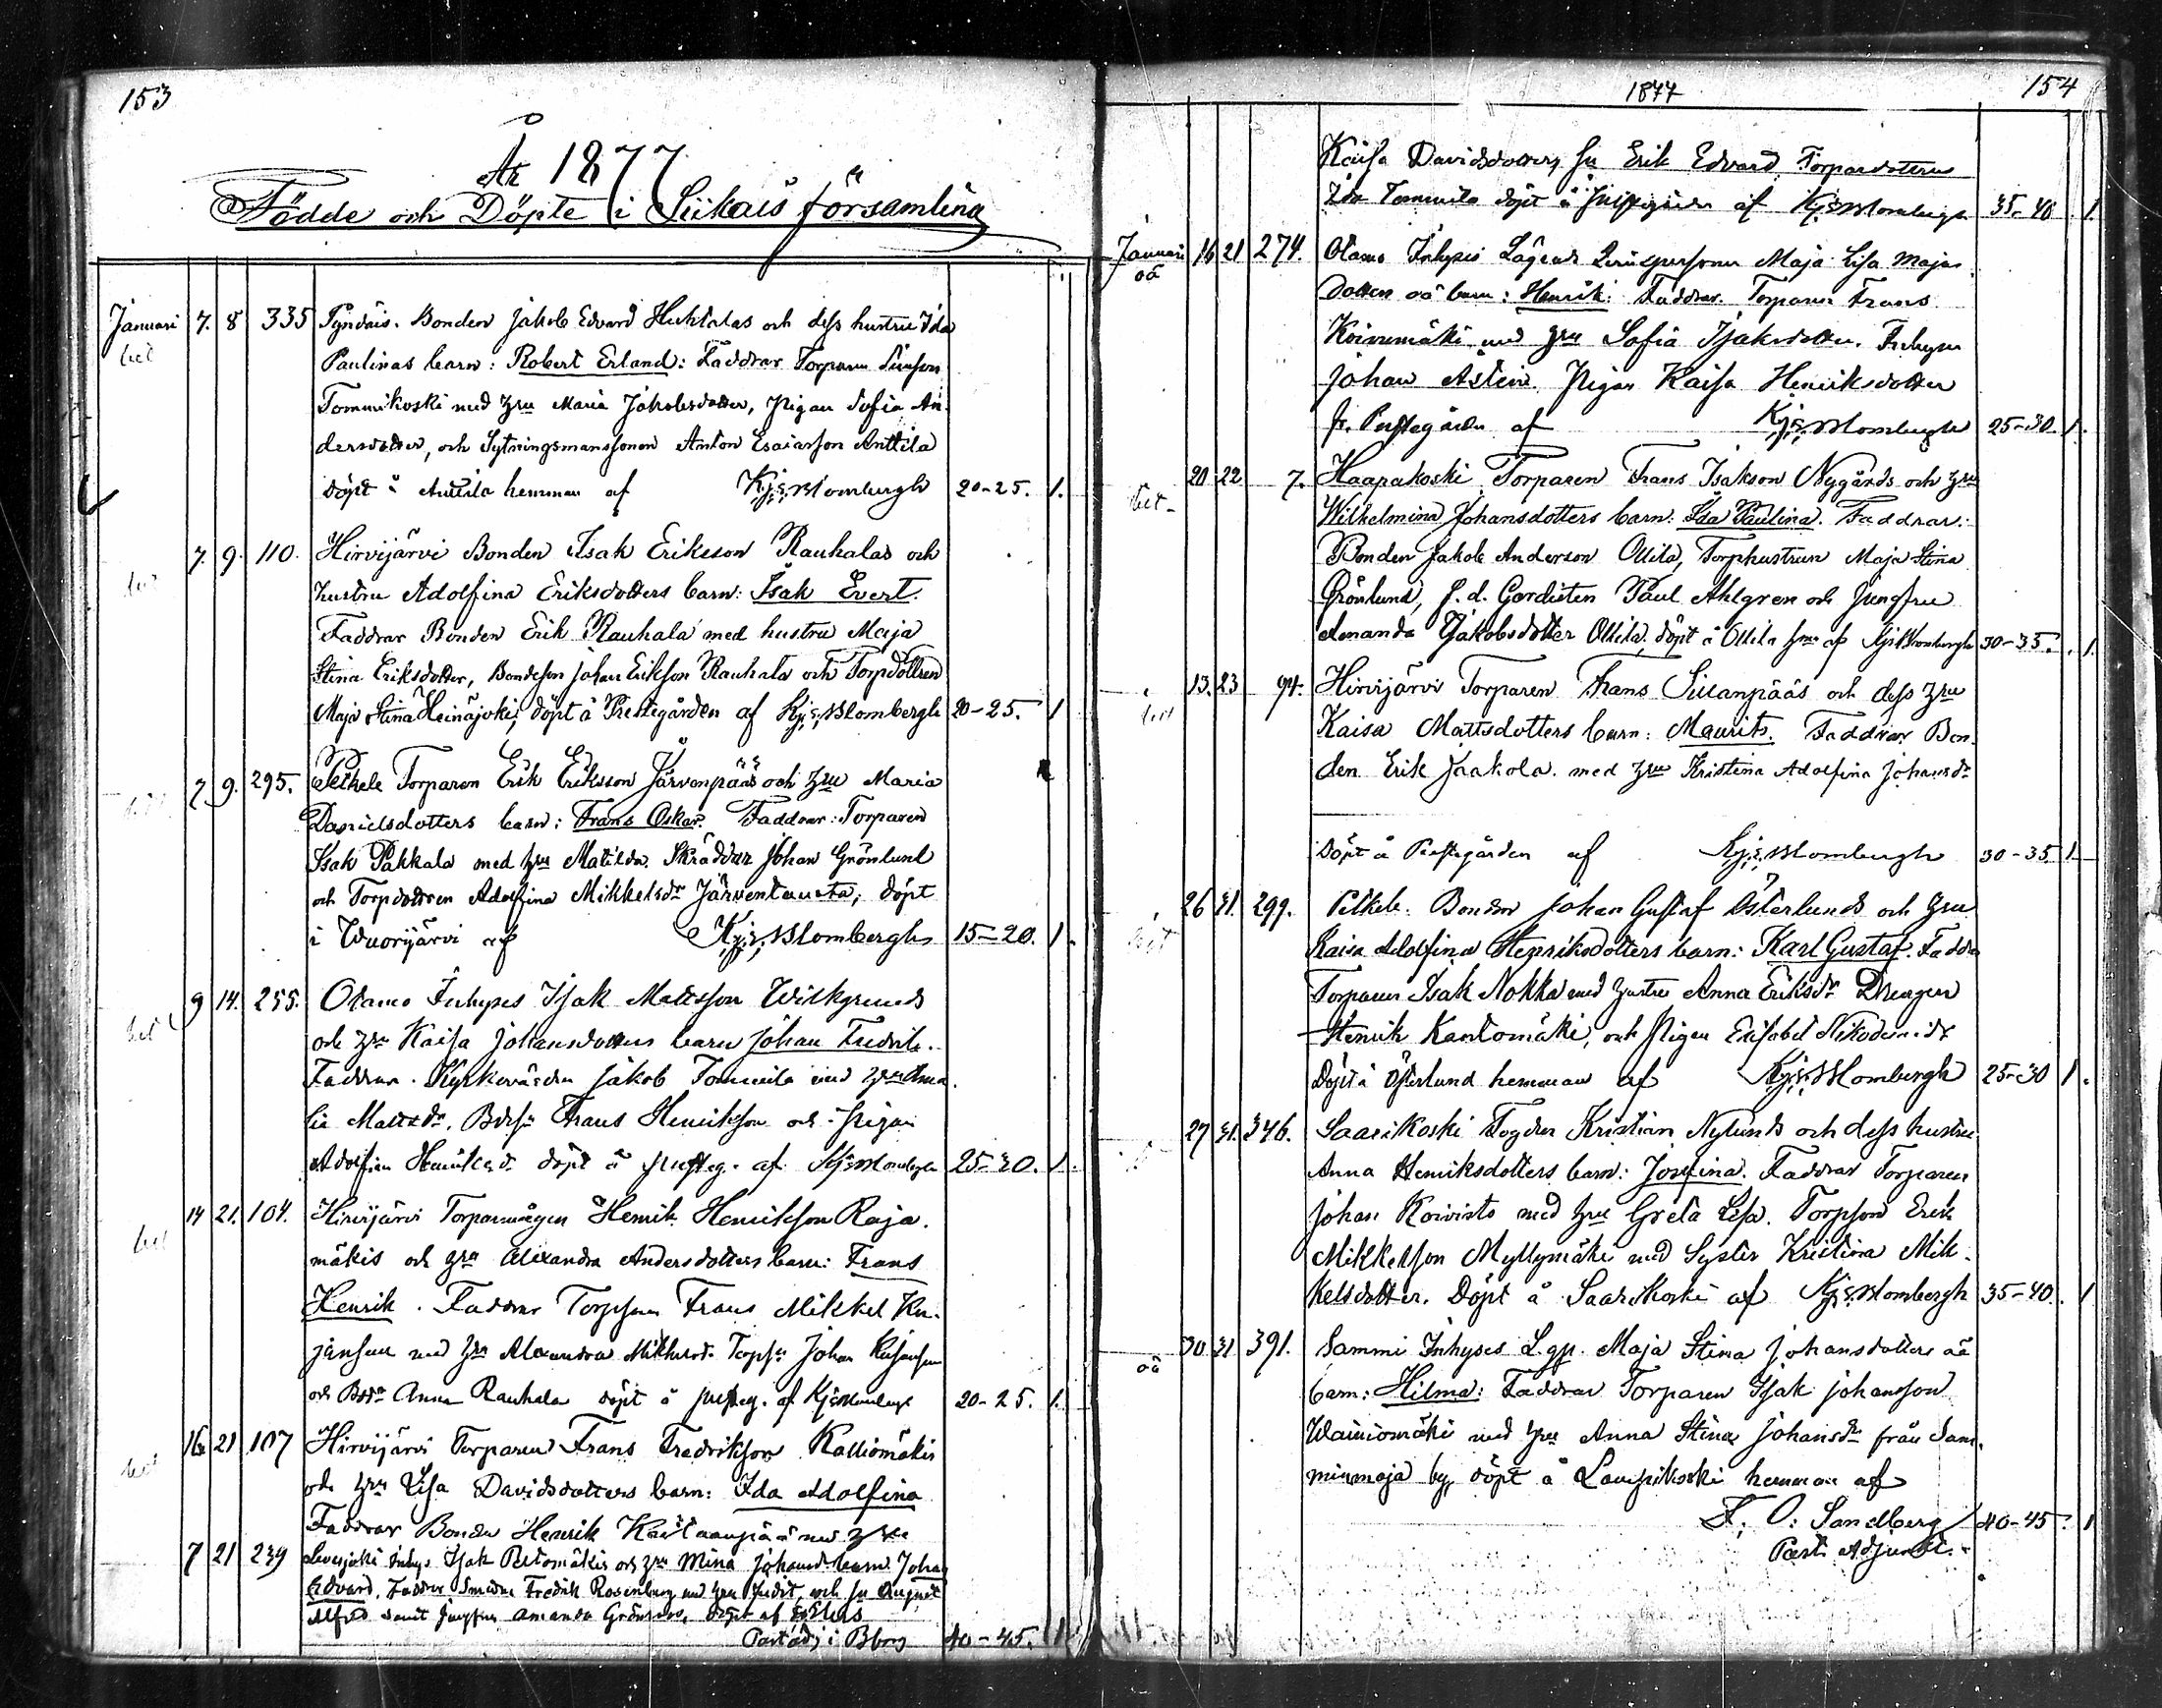 153
År 1877
Födde och Döpte i Siikais församling
Januari 7. 8 335 Pyntäis. Bonden Jakob Edvard Huhtalas och dess hustru Ida
Paulinas barn: Robert Erland: Faddrar Torparen Simson
Tommikoski med hru Maria Jakobsdotter, pigan Sofia An-
dersdotter, och Sytningsmanssonen Anton Esaiasson Anttila
döpt å Anttila hemman af Kjs Blombergh 20-25. 1.
7. 9. 110. Hirvijärvi Bonden Isak Eriksson Rauhalas och
hustru Adolfina Eriksdotters barn: Isak Evert.
Faddrar Bonden Erik Rauhala med hustru Maja
Stina Eriksdotter, Bondeson Johan Eriksson Rauhala och Torpdottren
Maja Stina Heinäjoki, döpt å Prestegården af Kjs Blombergh 20-25. 1
7. 9. 295. Petkele Torparen Erik Eriksson Järvenpääs och hru Maria
Danielsdotters barn: Frans Oskar. Faddrar: Torparen
Isak Pakkala med hru Matilda. Skräddar Johan Grönlund
och Torpdottren Adolfina Mikkelsdr Järventausta; döpt
i Wuorijärvi af Kjs Blombergh 15-20. 1.
9 14. 255. Otamo Inhyses Isak Mattsson Wilkgrunds
och hru Kaisa Johansdotters barn Johan Fredrik.
Faddrar. Kyrkovärden Jakob Tommila med hru Ama-
lie Mattsdr. Frans Henriksson och pigan
Adolfina Henriksdr döpt å presteg. af Kjs Blombergh 25-30. 1.
14 21. 104. Hirvijärvi Torparmågen Henrik Henriksson Raja-
mäkis och hru Alexandra Andersdotters barn: Frans
Henrik. Faddrar Torpson Frans Mikkel Ku-
jansuu med hru Alexandra Mikkelsdr Torps. Johan Kujansuu
och Anna Rauhala döpt å presteg. af Kjs Blombergh 20-25. 1.
16 21 107 Hirvijärvi Torparen Frans Fredriksson Kalliomäkis
och hru Lisa Davidsdotters barn: Ida Adolfina
Faddrar Bonden Henrik med hru
7 21 239 Leväjoki Inhys. Isak Peltomäkis och hru Mina Johansdr barn Johan
Edvard. Faddrar Smeden Fredrik Rosenberg med hru Judit, och August
Alfred samt Jungfrun Amanda Grönroos, döpt af
Past. adj. i Bborg 40-45. 1
1877 154
Kaisa Davidsdotter, Erik Edvard Torpardottern
Ida Tommila döpt å Prestgården af Kjs Blombergh 35-40 1.
Januari 16 21 274. Otamo Inhyses Lägerds qvinspersonen Maja Lisa Majas
oä dotters oä barn: Henrik: Faddrar. Torparen Frans
Koivumäki med hru Sofia Isaksdotter. Inhyses
Johan Pigan Kaisa Henriksdotter
fr. Prestegården af Kjs Blombergh 25-30. 1.
20 22 7. Haapakoski Torparen Frans Isakson Nygårds och hru
Wilhelmina Johansdotters barn: Ida Paulina. Faddrar:
Bonden Jakob Anderson Ollila, Torphustrun Maja Stina
Grönlund, f. d. Gardisten Paul Ahlgren och Jungfru
Amanda Jakobsdotter Ollila, döpt å Ollila hmn af Kjs Blombergh 30-35. 1.
13. 23 94. Hirvijärvi Torparen Frans Sillanpääs och dess hru
Kaisa Mattsdotters barn: Maurits. Faddrar Bon-
den Erik Jaakola. med hru Kristina Adolfina Johansdr
Döpt å Prestegården af Kjs Blombergh 30-35 1
26 31. 299. Petkele. Bonden Johan Gustaf Österlunds och hru
Kaisa Adolfina Henriksdotters barn: Karl Gustaf. Faddr.
Torparen Isak Nokka med hustru Anna Eriksdr Drengen
Henrik Kantomäki, och Pigan Elisabet Nikodemsdr
Döpt å Österlund hemman af Kjs Blombergh 25-30 1.
27 31. 346. Saarikoski Torparen Kristian Nylunds och dess hustru
Anna Henriksdotters barn: Josefina. Faddrar Torparen
Johan Koivisto med hru Greta Lisa. Torpson Erik
Mikkelsson Myllymäki med Syster Kristina Mik-
kelsdotter. Döpt å Saarikoski af Kjs Blombergh 35-40. 1
30. 31 391. Sammi Inhyses L. qp. Maja Stina Johansdotters oä
oä barn: Hilma: Faddrar Torparen Isak Johansson
Wainiomäki med hru Anna Stina Johansdr från Sam-
minmaja by, döpt å Lauzikoski hemman af
F. O. Sandberg 40-45. 1
Past. Adjunkt.